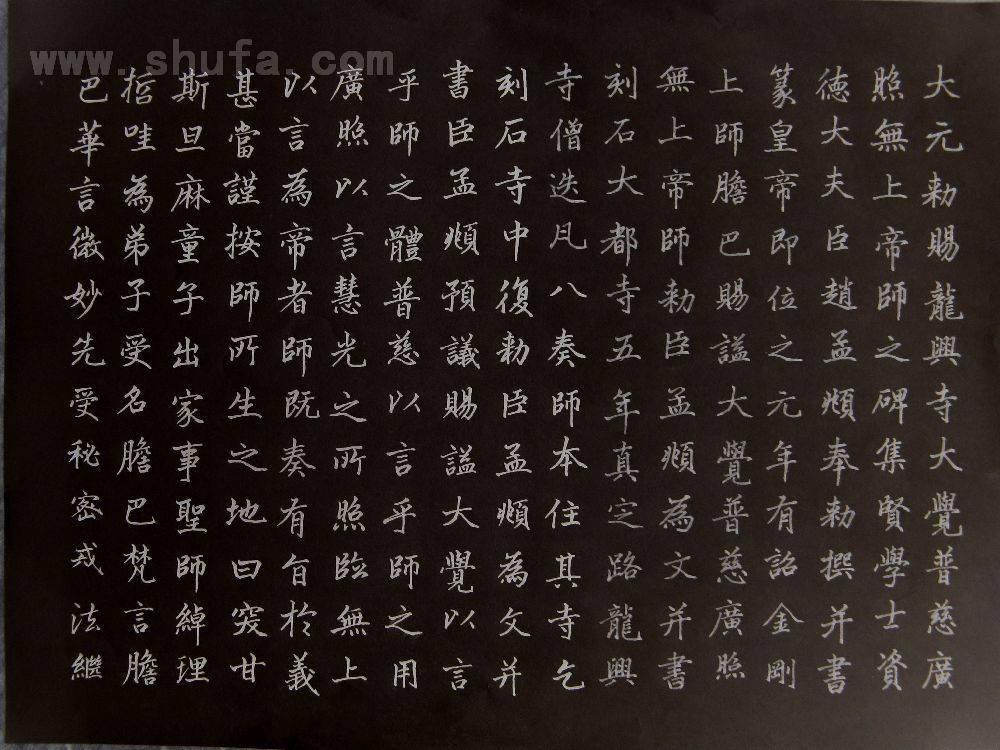 www.shufa.com
大元勅賜龍興寺大覺普慈廣
照無上帝師之碑集賢學士資
德大夫臣趙孟頫奉勅撰并書
篆皇帝即位之元年有詔金剛
上師膽巴賜謚大覺普慈廣照
無上帝師勅臣孟頫為文并書
刻石大都寺五年真定路龍興
寺僧迭凡八奏師本住其寺乞
刻石寺中復勅臣孟頫為文并
書臣孟頫預議賜謚大覺以言
乎師之體普慈以言乎師之用
廣照以言慧光之所照臨無上
以言為帝者師既奏有旨於義
甚當謹按師所生之地曰突甘
斯旦麻童子出家事聖師綽理
哲哇為弟子受名膽巴梵言膽
巴華言微妙先受秘密戒法繼